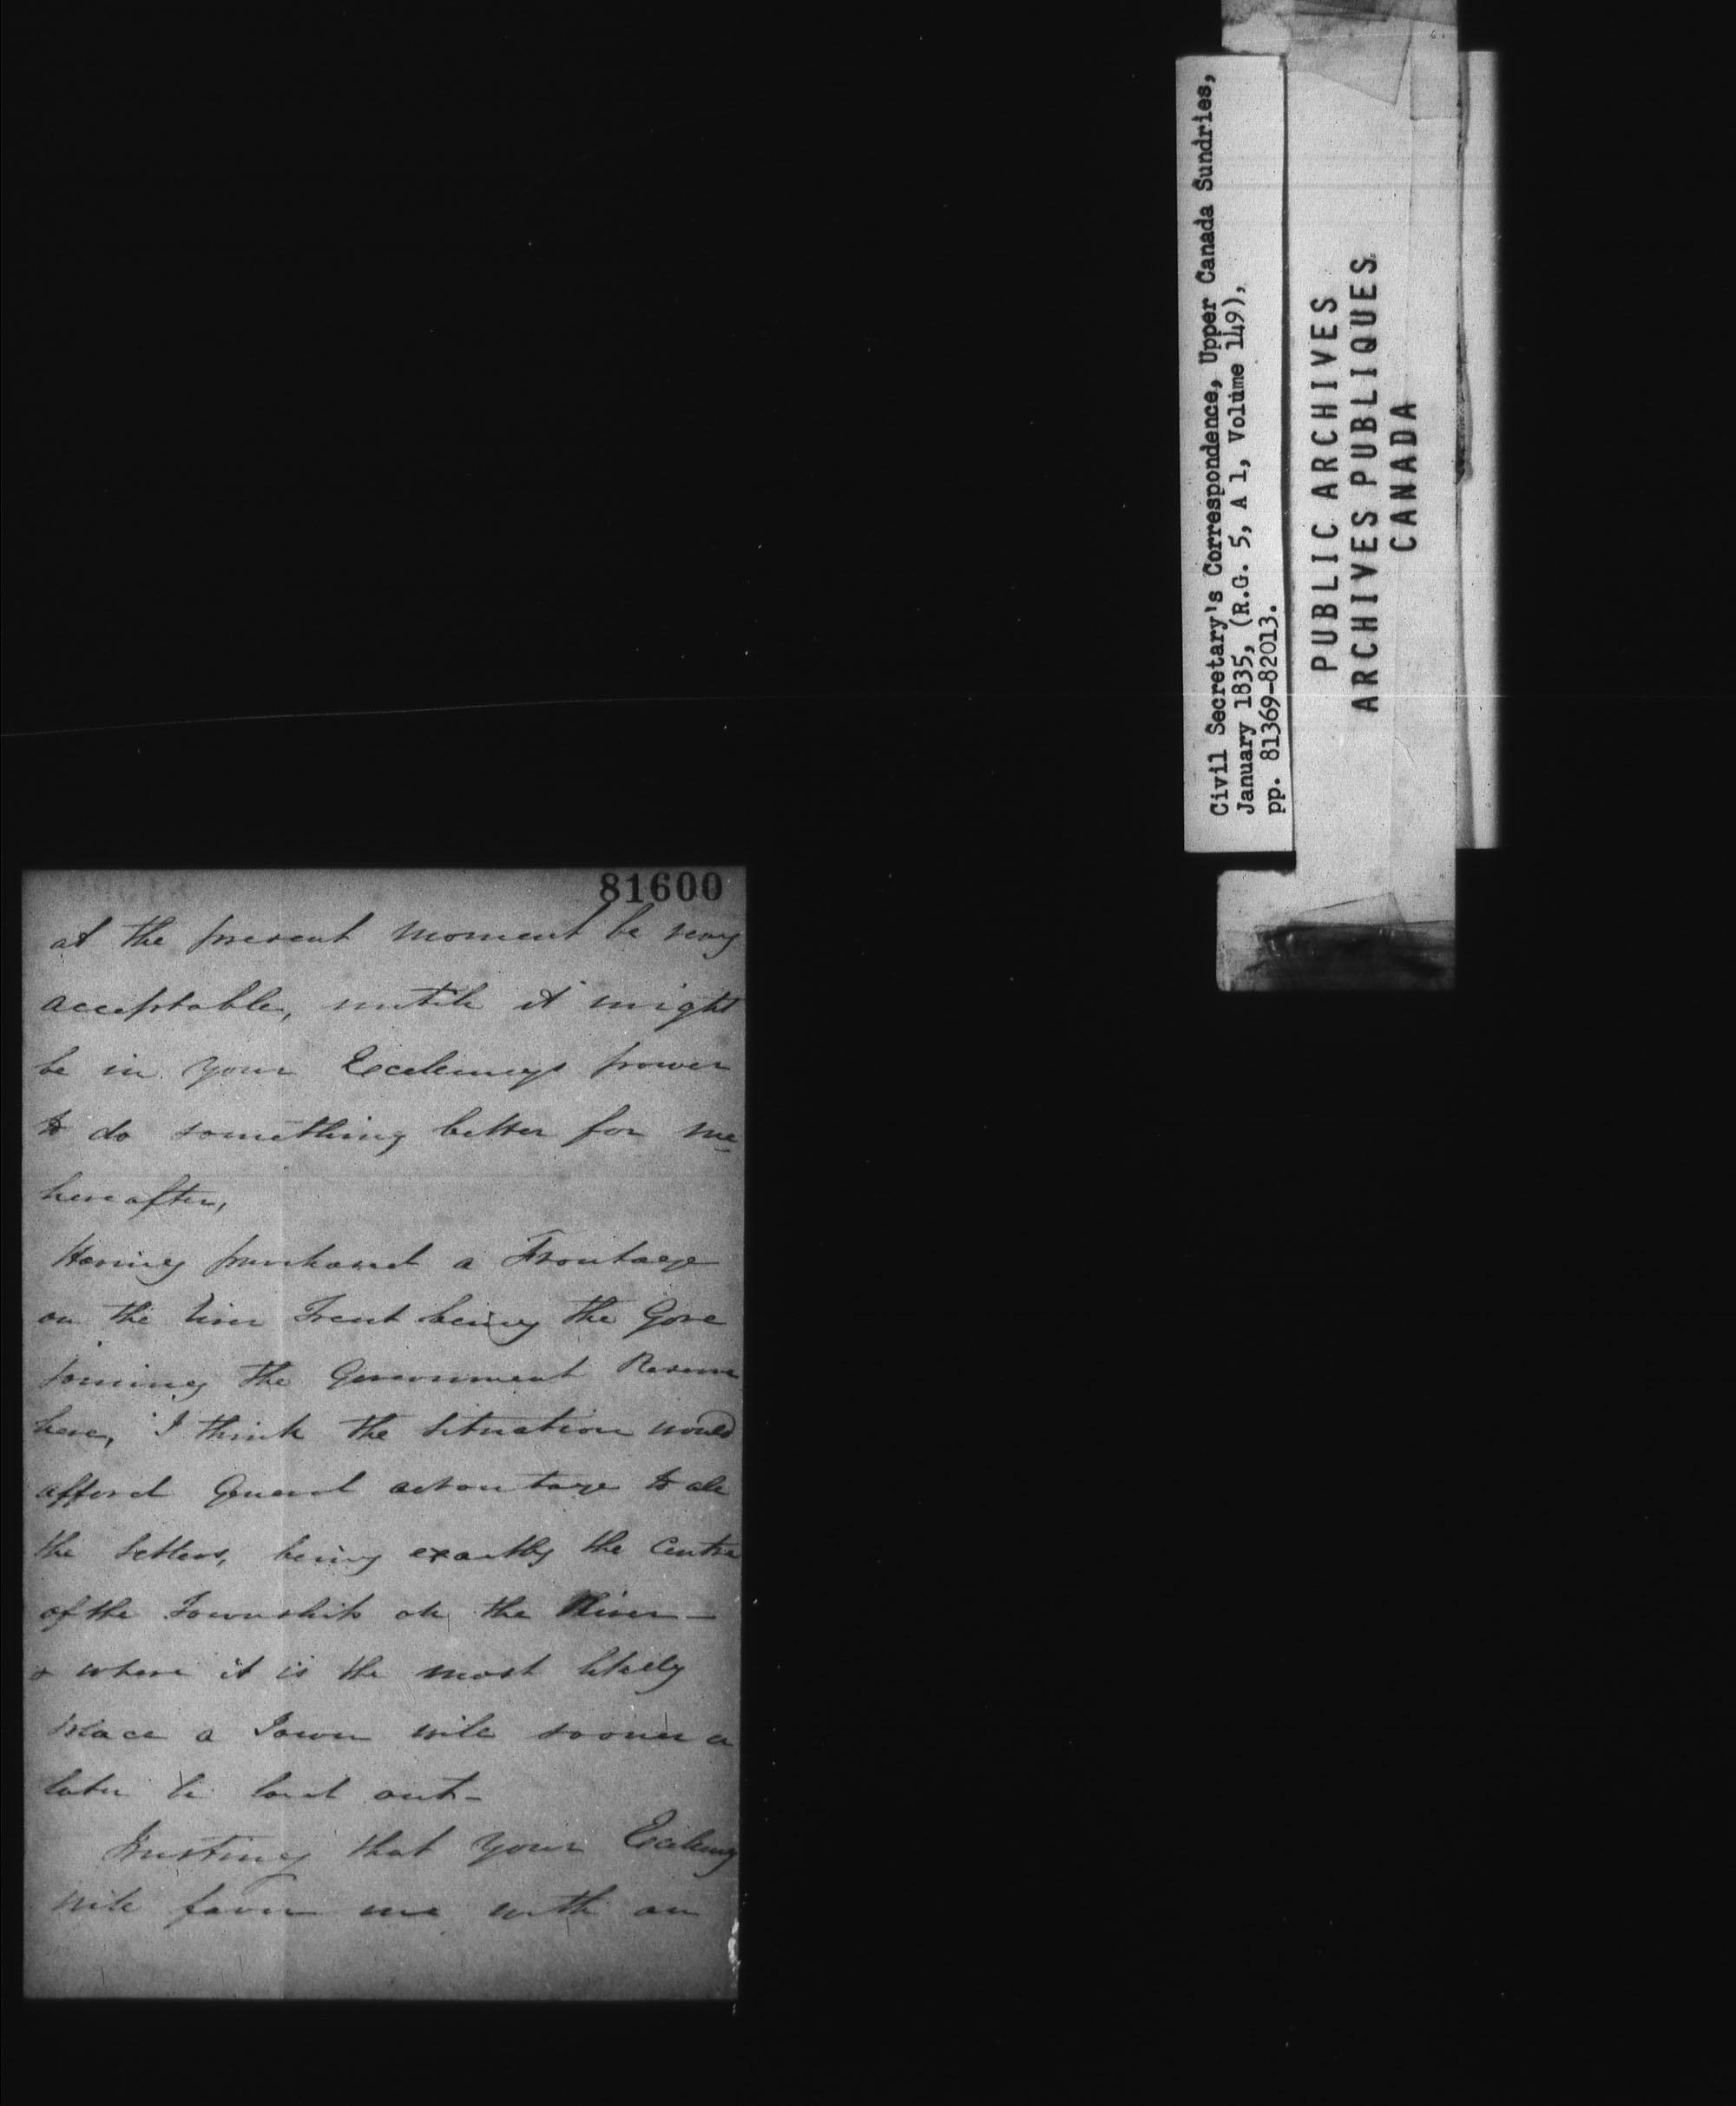 81600
at the present moment be very
acceptable, until it might
be in your Excellencys power
to do something better for me
hereafter,
Having purchased a Frontage
on the River Trent being the Gore
joining the Government Reserve
here, I think the situation would
afford General advantage to all
the Settlers, being exactly the Centre
of the Township on the River -
& where it is the most likely
place a Town will sooner or
later be laid out -
Trusting that your Excellency
will favor me with an
Civil Secretary's Correspondence, Upper Canada Sundries,
January 1835, (R.G. 5, A 1, Volume 149),
pp. 81369-82013.
PUBLIC ARCHIVES
ARCHIVES PUBLIQUES
CANADA